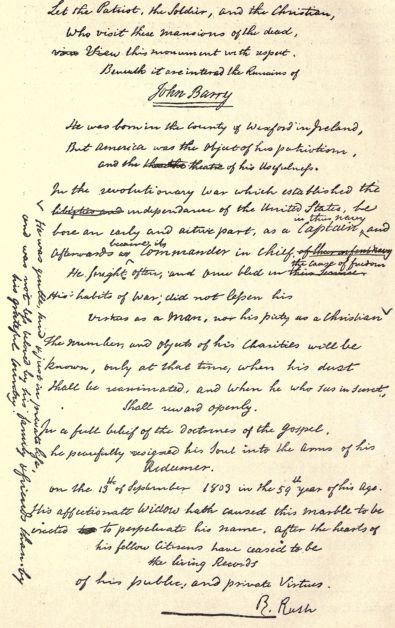 Let the Patriot, the Soldier, and the Christian,
Who visit these mansions of the dead,
View this monument with respect.
Beneath it are interred the Remains of
John Barry
He was born in the County of Wexford in Ireland,
But America was the object of his patriotism,
and the theatre of his Usefulness.
In the revolutionary war which established the
independance of the United States, he
bore an early and active part, as a Captain in their navy and
afterwards became its Commander in Chief,
He fought often, and once bled in the cause of freedom
His habits of War, did not lessen his
virtues as a Man, nor his piety as a Christian
He was gentle, kind and just in private life,
and was not less beloved by his family & friends than by
his grateful Country.
The number, and objects of his Charities will be
known, only at that time, when his dust
Shall be reanimated, and when he who sees in Secret,
Shall reward openly.
In a full belief of the doctrines of the Gospel,
he peacefully resigned his Soul into the arms of his
Redeemer.
on the 13th of September 1803 in the 59th year of his Age.
His affectionate Widow hath caused this marble to be
erected to perpetuate his name, after the hearts of
his fellow Citizens have ceased to be
the living Records
of his public, and private Virtues.
R. Rush